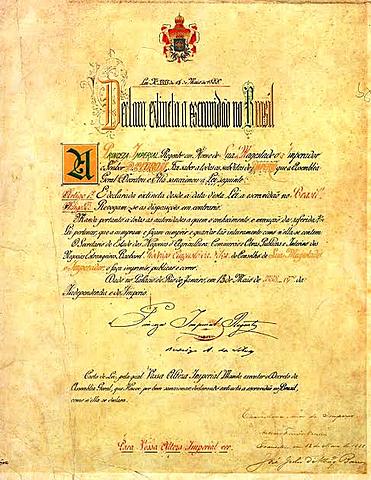 Lei Nº 3353 de 13 de Maio de 1888
Declara extincta a escravidão no Brasil
A PRINCEZA IMPERIAL Regente em Nome de Sua Magestade o Imperador
o Senhor D. PEDRO II, Faz saber a todos os subditos do IMPERIO que a Assembléa
Geral Decretou e Ella sanccionou a Lei seguinte
Artigo 1º É declarada extincta desde a data desta Lei a escravidão no Brazil
Revogam-se as disposições em contrario
Manda portanto a todas as autoridades a quem o conhecimento e execução da referida
Lei pertencer, que a cumpram e façam cumprir e guardar tão inteiramente como n'ella se contem
O Secretario de Estado dos Negocios d'Agricultura, Commercio e Obras Publicas e Interino dos
Negocios Estrangeiros, Bacharel Rodrigo Augusto da Silva, do Conselho de Sua Magestade
o Imperador, o faça imprimir, publicar e correr.
Dado no Palacio do Rio de Janeiro, em 13 de Maio de 1888, 67º da
Independencia e do Imperio.
Princeza Imperial Regente
Rodrigo A. da Silva
Carta de Lei, pela qual Vossa Alteza Imperial Manda executar o Decreto da
Assembléa Geral, que Houve por bem sanccionar declarando extincta a escravidão no Brazil,
como n'ella se declara.
Para Vossa Alteza Imperial ver.